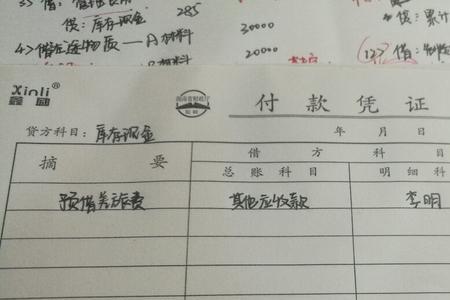 贷:库存现金 285
4>借:在途物资—A材料 30000
B材料 20000
贷:累计
12> 借:
Xinli®
鑫凤
付款凭证
贷方科目:库存现金
年 月 日
摘要
借方科目
总账科目 明细科
预借差旅费 其他应收款 李明